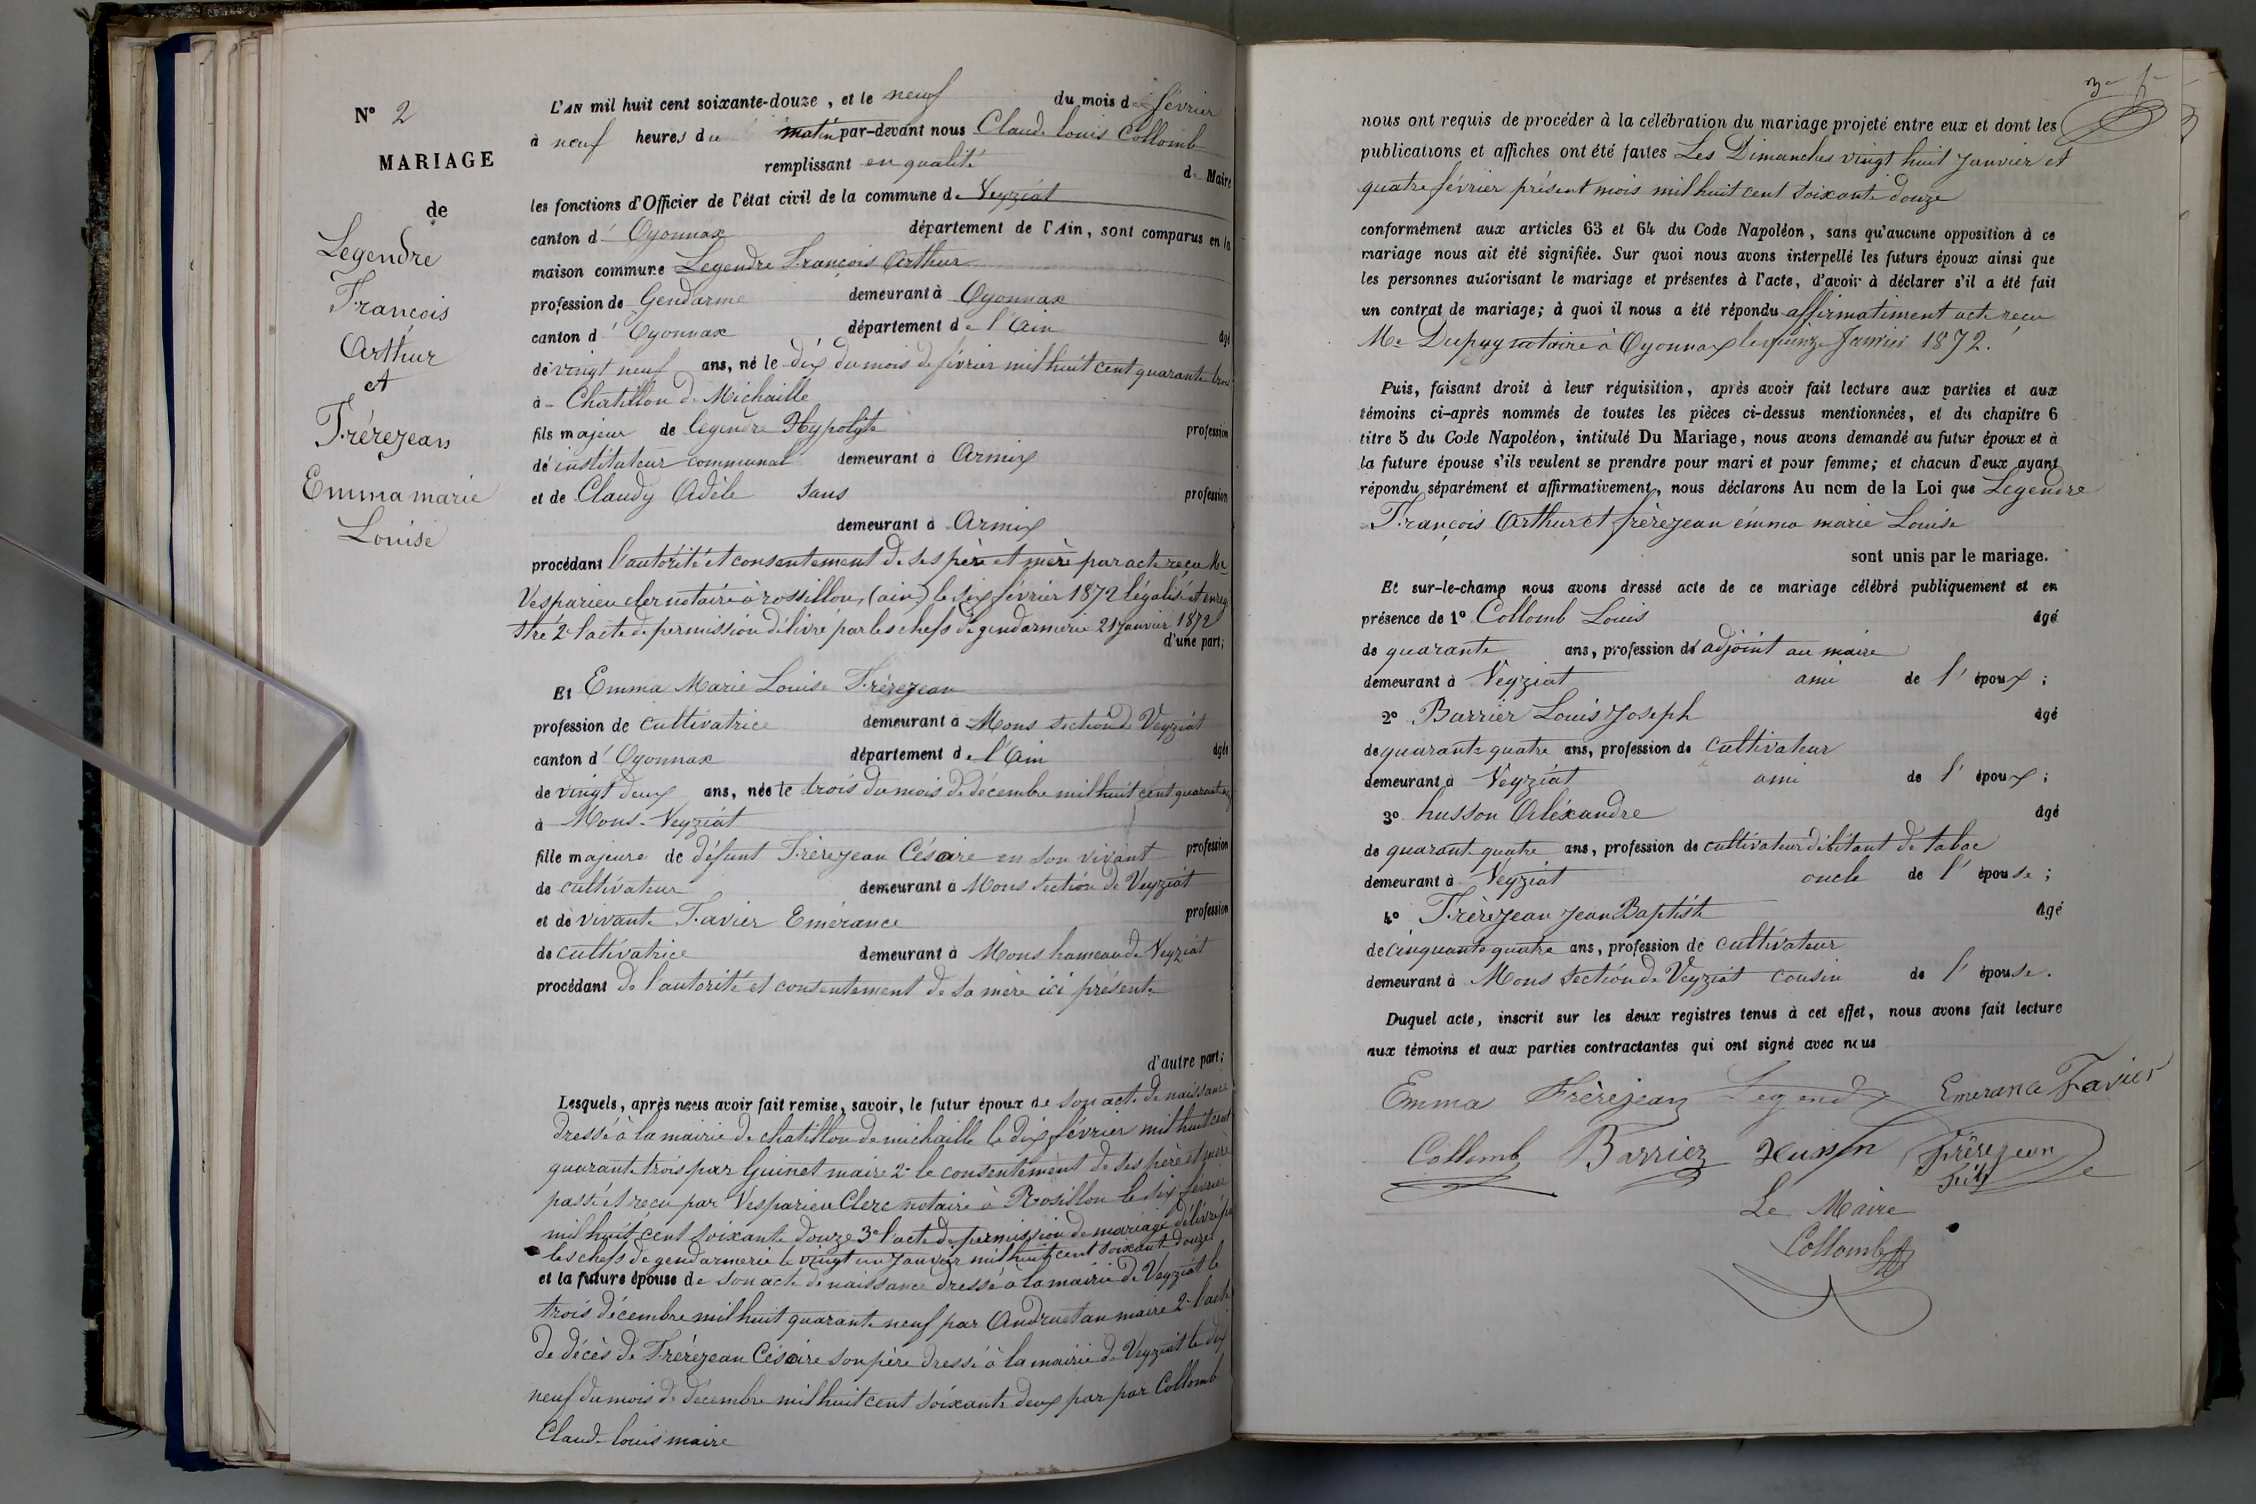 N° 2
MARIAGE
de
Legendre
François
Arthur
et
Frèrejean
Emma marie
Louise
L'AN mil huit cent soixante-douze, et le neuf du mois de février
à neuf heures du matin par-devant nous Claude louis Collomb
remplissant en qualité de Maire
les fonctions d'Officier de l'état civil de la commune de Veyziat
canton d' Oyonnax département de l'Ain, sont comparus en la
maison commune Legendre François Arthur
profession de Gendarme demeurant à Oyonnax
canton d' Oyonnax département de l'Ain âgé
de vingt neuf ans, né le dix du mois de février mil huit cent quarante trois
à Chatillon de Michaille
fils majeur de legendre Hypolyte profession
de instituteur communal demeurant à Armix
et de Claudy Adèle sans profession
demeurant à Armix
procédant l'autorité et consentement de ses père et mère par acte reçu Me
Vesparieu clerc notaire à rossillon, (ain) le six février 1872 légalisé et enregi
stré 2° l'acte de permission délivré par les chefs de gendarmerie 21 janvier 1872
d'une part;
Et Emma Marie Louise Frèrejean
profession de cultivatrice demeurant à Mons section de Veyziat
canton d' Oyonnax département de l'Ain âgée
de vingt deux ans, née le trois du mois de décembre mil huit cent quarante neuf
à Mons-Veyziat
fille majeure de défunt Frèrejean Césaire en son vivant profession
de cultivateur demeurant à Mons section de Veyziat
et de vivante Favier Emérance profession
de cultivatrice demeurant à Mons hameau de Veyziat
procédant de l'autorité et consentement de sa mère ici présente
d'autre part;
Lesquels, après nous avoir fait remise, savoir, le futur époux de son acte de naissance
dressé à la mairie de chatillon de michaille le dix février mil huit cent
quarante trois par Guinet maire 2° le consentement de ses père et mère
passé et reçu par Vesparieu Clerc notaire à Rossillon le six février
mil huit cent soixante douze 3° l'acte de permission de mariage délivré par
les chefs de gendarmerie le vingt un janvier mil huit cent soixante douze
et la future épouse de son acte de naissance dressé à la mairie de Veyziat le
trois décembre mil huit quarante neuf par Andruetan maire 2° l'acte
de décès de Frèrejean Césaire son père dressé à la mairie de Veyziat le dix
neuf du mois de décembre mil huit cent soixante deux par par Collomb
Claude louis maire
nous ont requis de procéder à la célébration du mariage projeté entre eux et dont les
publications et affiches ont été faites Les Dimanches vingt huit janvier et
quatre février présent mois mil huit cent soixante douze
conformément aux articles 63 et 64 du Code Napoléon, sans qu'aucune opposition à ce
mariage nous ait été signifiée. Sur quoi nous avons interpellé les futurs époux ainsi que
les personnes autorisant le mariage et présentes à l'acte, d'avoir à déclarer s'il a été fait
un contrat de mariage; à quoi il nous a été répondu affirmatiment acte reçu
Me Dupuy notaire à Oyonnax le quinze Janvier 1872.
Puis, faisant droit à leur réquisition, après avoir fait lecture aux parties et aux
témoins ci-après nommés de toutes les pièces ci-dessus mentionnées, et du chapitre 6
titre 5 du Code Napoléon, intitulé Du Mariage, nous avons demandé au futur époux et à
la future épouse s'ils veulent se prendre pour mari et pour femme; et chacun d'eux ayant
répondu séparément et affirmativement, nous déclarons Au nom de la Loi que Legendre
François Arthur et frèrejean émma marie Louise
sont unis par le mariage.
Et sur-le-champ nous avons dressé acte de ce mariage célébré publiquement et en
présence de 1° Collomb Louis âgé
de quarante ans, profession d'adjoint au maire
demeurant à Veyziat ami de l'époux;
2° Barrier Louis Joseph âgé
de quarante quatre ans, profession de cultivateur
demeurant à Veyziat ami de l'époux;
3° husson Aléxandre âgé
de quarante quatre ans, profession de cultivateur débitant de tabac
demeurant à Veyziat oncle de l'épouse;
4° Frèrejean Jean Baptiste âgé
de cinquante quatre ans, profession de cultivateur
demeurant à Mons section de Veyziat cousin de l'épouse.
Duquel acte, inscrit sur les deux registres tenus à cet effet, nous avons fait lecture
aux témoins et aux parties contractantes qui ont signé avec nous
Emma Frèrejean Legendre Emerance Favier
Collomb Barrier Husson Frèrejean
Le Maire
Collomb